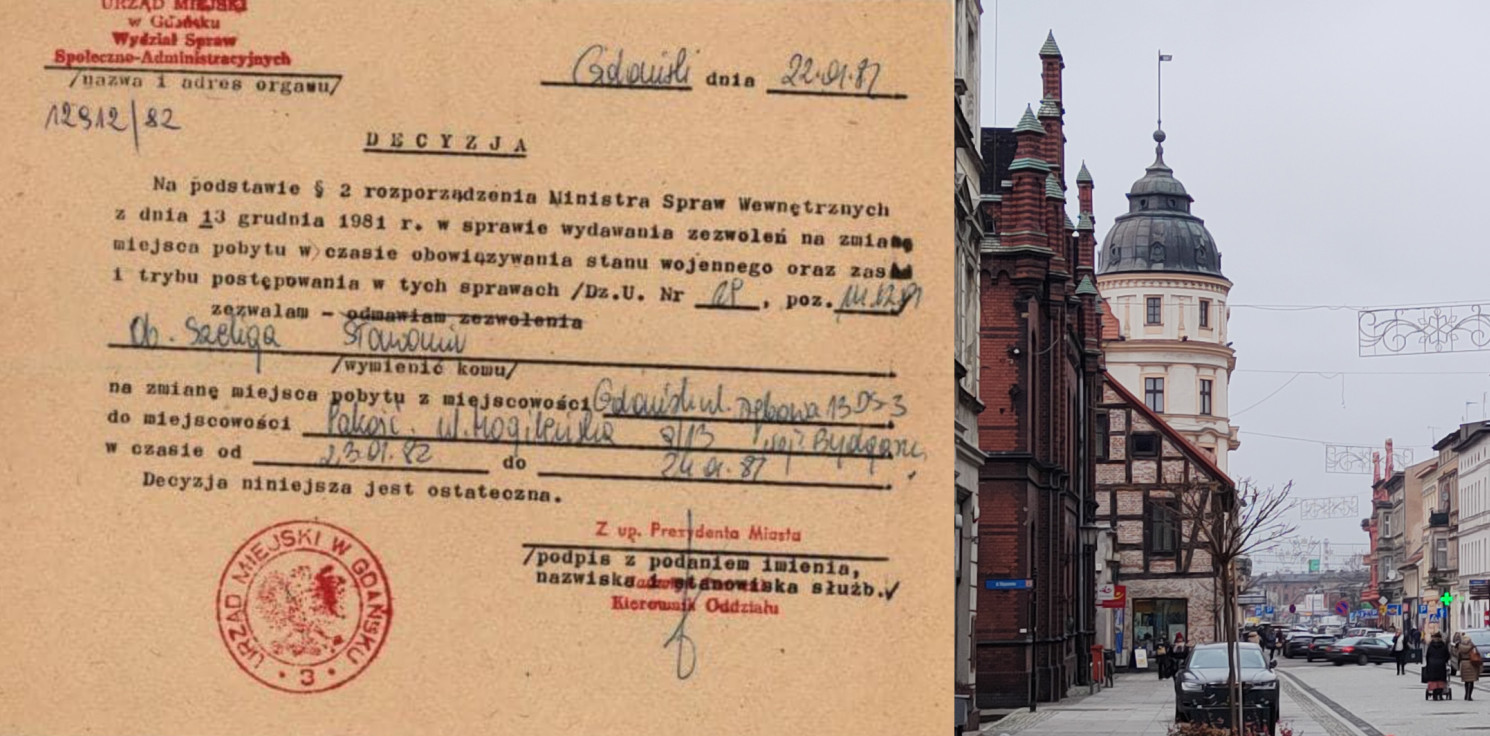 URZĄD MIEJSKI
w Gdańsku
Wydział Spraw
Społeczno-Administracyjnych
/nazwa i adres organu/
12912/82
Gdańsk dnia 22.01.82
DECYZJA
Na podstawie § 2 rozporządzenia Ministra Spraw Wewnętrznych
z dnia 13 grudnia 1981 r. w sprawie wydawania zezwoleń na zmianę
miejsca pobytu w czasie obowiązywania stanu wojennego oraz zasad
i trybu postępowania w tych sprawach /Dz.U. Nr , poz. 14.12.81
zezwalam - odmawiam zezwolenia
Ob. Szeliga Sławomir
/wymienić komu/
na zmianę miejsca pobytu z miejscowości Gdańsk ul. Dębowa 13 DS-3
do miejscowości Pakość. ul. Mogileńska 9/13 woj. Bydgoszcz
w czasie od 23.01.82 do 24.01.82
Decyzja niniejsza jest ostateczna.
Z up. Prezydenta Miasta
/podpis z podaniem imienia,
nazwiska i stanowiska służb./
Kierownik Oddziału
URZĄD MIEJSKI W GDAŃSKU
3